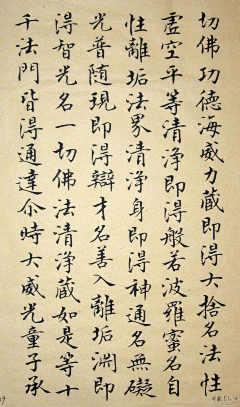 切佛功德海威力藏即得大捨名法性
虛空平等清淨即得般若波羅蜜名自
性離垢法界清淨身即得神通名無礙
光普隨現即得辯才名善入離垢淵即
得智光名一切佛法清淨藏如是等十
千法門皆得通達尒時大威光童子承